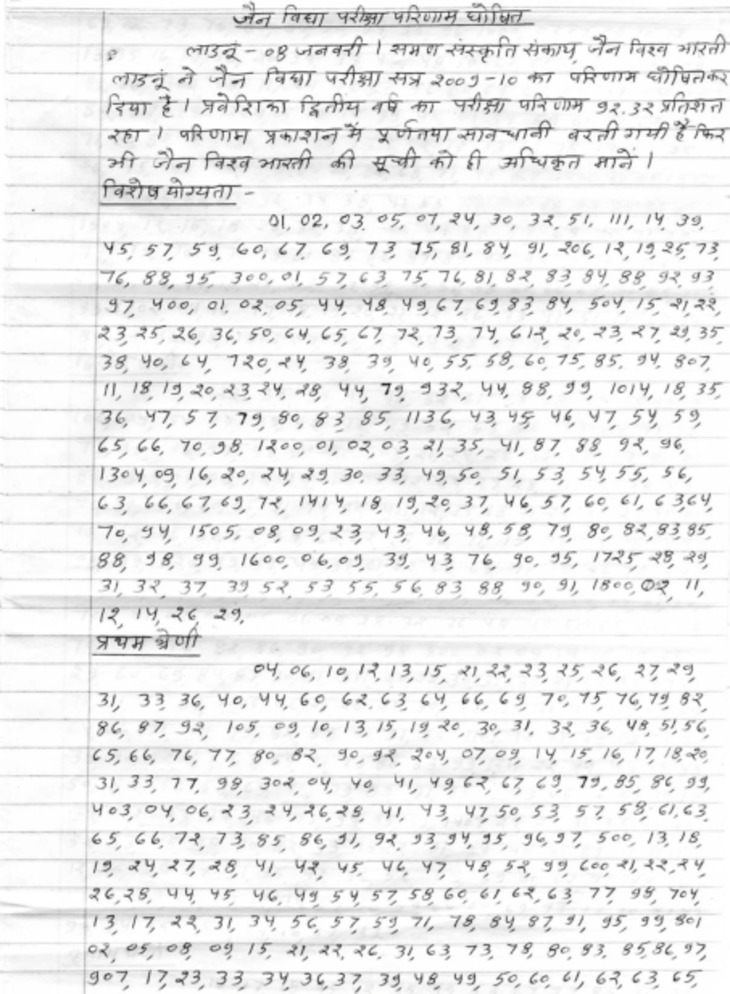 जैन विद्या परीक्षा परिणाम घोषित
लाडनूं - 08 जनवरी । समण संस्कृति संकाय, जैन विश्व भारती
लाडनूं ने जैन विद्या परीक्षा सत्र 2009-10 का परिणाम घोषित कर
दिया है । प्रवेशिका द्वितीय वर्ष का परीक्षा परिणाम 92.32 प्रतिशत
रहा । परिणाम प्रकाशन में पूर्णतया सावधानी बरती गयी है फिर
भी जैन विश्व भारती की सूची को ही अधिकृत मानें ।
विशेष योग्यता -
01, 02, 03, 05, 07, 24, 30, 32, 51, 111, 14, 39,
45, 57, 59, 60, 67, 69, 73, 75, 81, 84, 91, 206, 12, 19, 25, 73
76, 88, 95, 300, 01, 57, 63, 75, 76, 81, 82, 83, 84, 88, 92, 93
97, 400, 01, 02, 05, 44, 48, 49, 67, 69, 83, 84, 504, 15, 21, 22
23, 25, 26, 36, 50, 64, 65, 67, 72, 73, 74, 612, 20, 23, 27, 29, 35
38, 40, 64, 720, 24, 38, 39, 40, 55, 58, 60, 75, 85, 94, 807,
11, 18, 19, 20, 23, 24, 28, 44, 79, 932, 44, 88, 99, 1014, 18, 35
36, 47, 57, 79, 80, 83, 85, 1136, 43, 45, 46, 47, 54, 59,
65, 66, 70, 98, 1200, 01, 02, 03, 21, 35, 41, 87, 88, 92, 96,
1304, 09, 16, 20, 24, 29, 30, 33, 49, 50, 51, 53, 54, 55, 56,
63, 66, 67, 69, 72, 1414, 18, 19, 20, 37, 46, 57, 60, 61, 63, 64,
70, 94, 1505, 08, 09, 23, 43, 46, 48, 58, 79, 80, 82, 83, 85
88, 98, 99, 1600, 06, 09, 39, 43, 76, 90, 95, 1725, 28, 29,
31, 32, 37, 39, 52, 53, 55, 56, 83, 88, 90, 91, 1800, 02, 11,
12, 14, 26, 29,
प्रथम श्रेणी
04, 06, 10, 12, 13, 15, 21, 22, 23, 25, 26, 27, 29
31, 33, 36, 40, 44, 60, 62, 63, 64, 66, 69, 70, 75, 76, 79, 82
86, 87, 92, 105, 09, 10, 13, 15, 19, 20, 30, 31, 32, 36, 48, 51, 56
65, 66, 76, 77, 80, 82, 90, 92, 204, 07, 09, 14, 15, 16, 17, 18, 20
31, 33, 77, 98, 302, 04, 40, 41, 49, 62, 67, 69, 79, 85, 86, 99,
403, 04, 06, 23, 24, 26, 28, 41, 43, 47, 50, 53, 57, 58, 61, 63
65, 66, 72, 73, 85, 86, 91, 92, 93, 94, 95, 96, 97, 500, 13, 18,
19, 24, 27, 28, 41, 42, 45, 46, 47, 48, 52, 99, 600, 21, 22, 24
26, 28, 44, 45, 46, 49, 54, 57, 58, 60, 61, 62, 63, 77, 98, 704
13, 17, 22, 31, 34, 56, 57, 59, 71, 78, 84, 87, 91, 95, 99, 801
02, 05, 08, 09, 15, 21, 22, 26, 31, 63, 73, 78, 80, 83, 85, 86, 97,
907, 17, 23, 33, 34, 36, 37, 39, 48, 49, 50, 60, 61, 62, 63, 65,